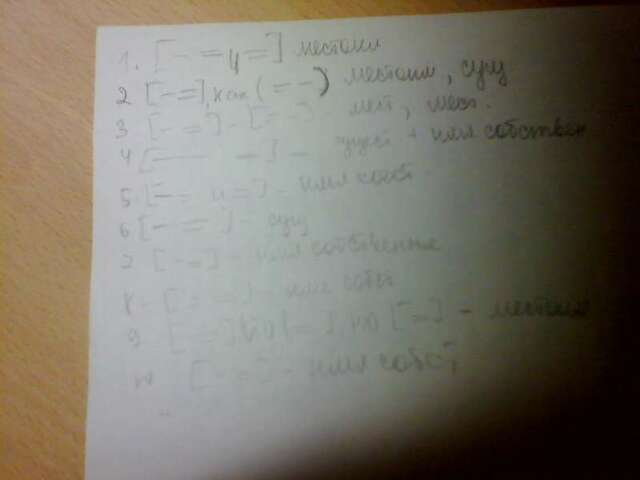 1. [— = и =] местоим
2 [— =], как (= —) местоим, сущ
3 [— =] - [— —] - мест, мест.
4 [— —] - + имя собствен
5. [— и =] - имя собст.
6 [— =] - сущ
7 [— =] - имя собственные
8 - [— =] - имя собст
9 [— =] но [— =] - местоим
10 [— =] - имя собст